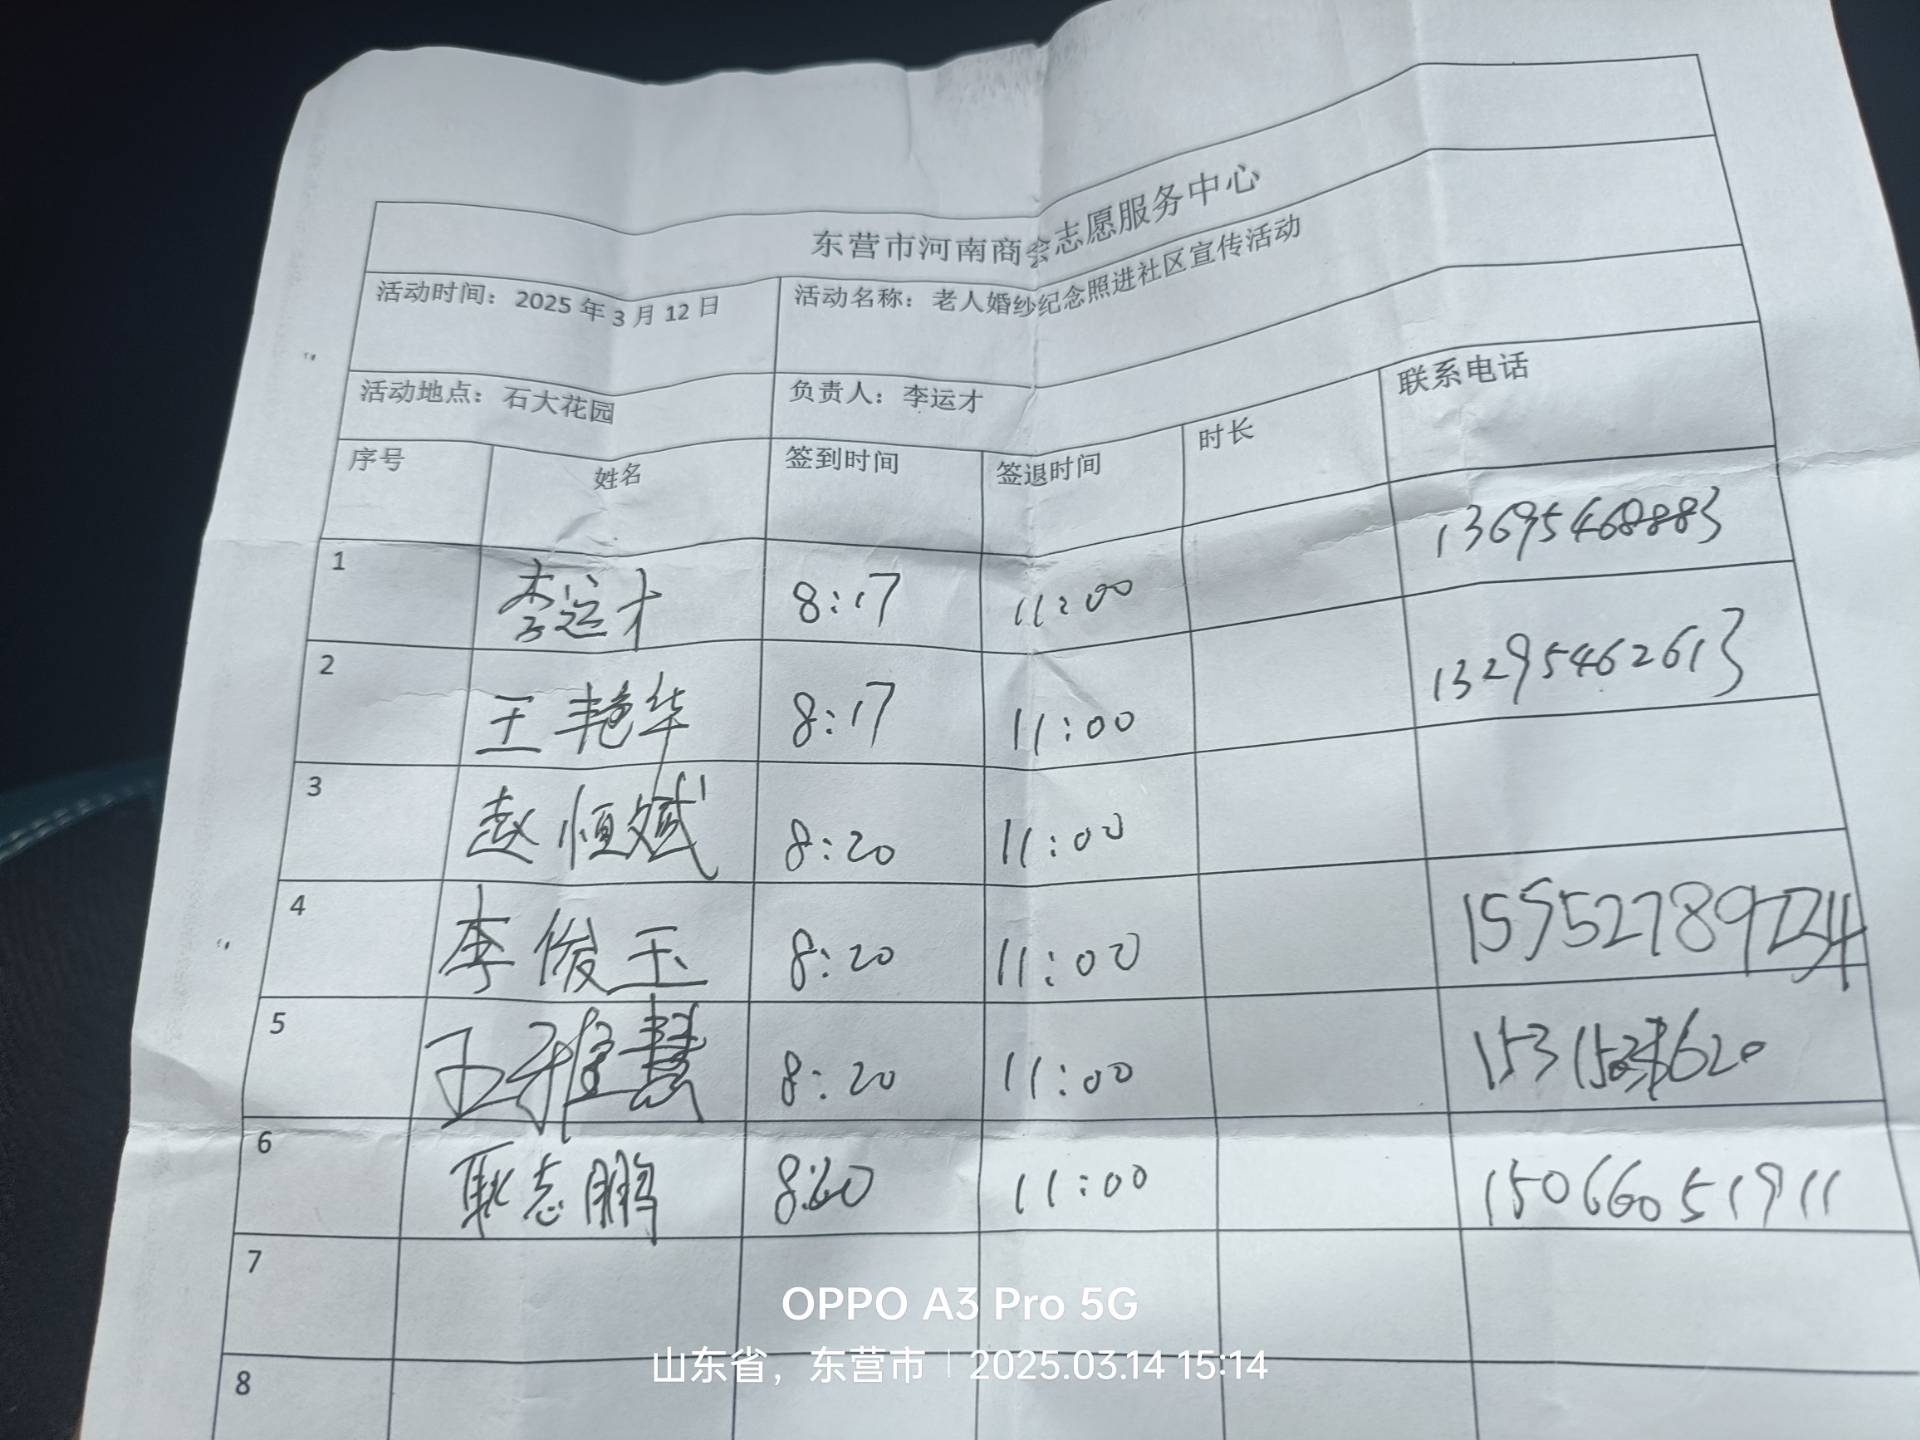 东营市河南商会志愿服务中心
活动时间：2025 年 3 月 12 日 活动名称：老人婚纱纪念照进社区宣传活动
活动地点：石大花园 负责人：李运才
序号 姓名 签到时间 签退时间 时长 联系电话
1 李运才 8:17 11:00 13695468883
2 王艳华 8:17 11:00 13295462613
3 赵恒斌 8:20 11:00
4 李俊玉 8:20 11:00
5 王雅慧 8:20 11:00
6 耿志鹏 11:00 15066051911
7
8
OPPO A3 Pro 5G
山东省，东营市 | 2025.03.14 15:14